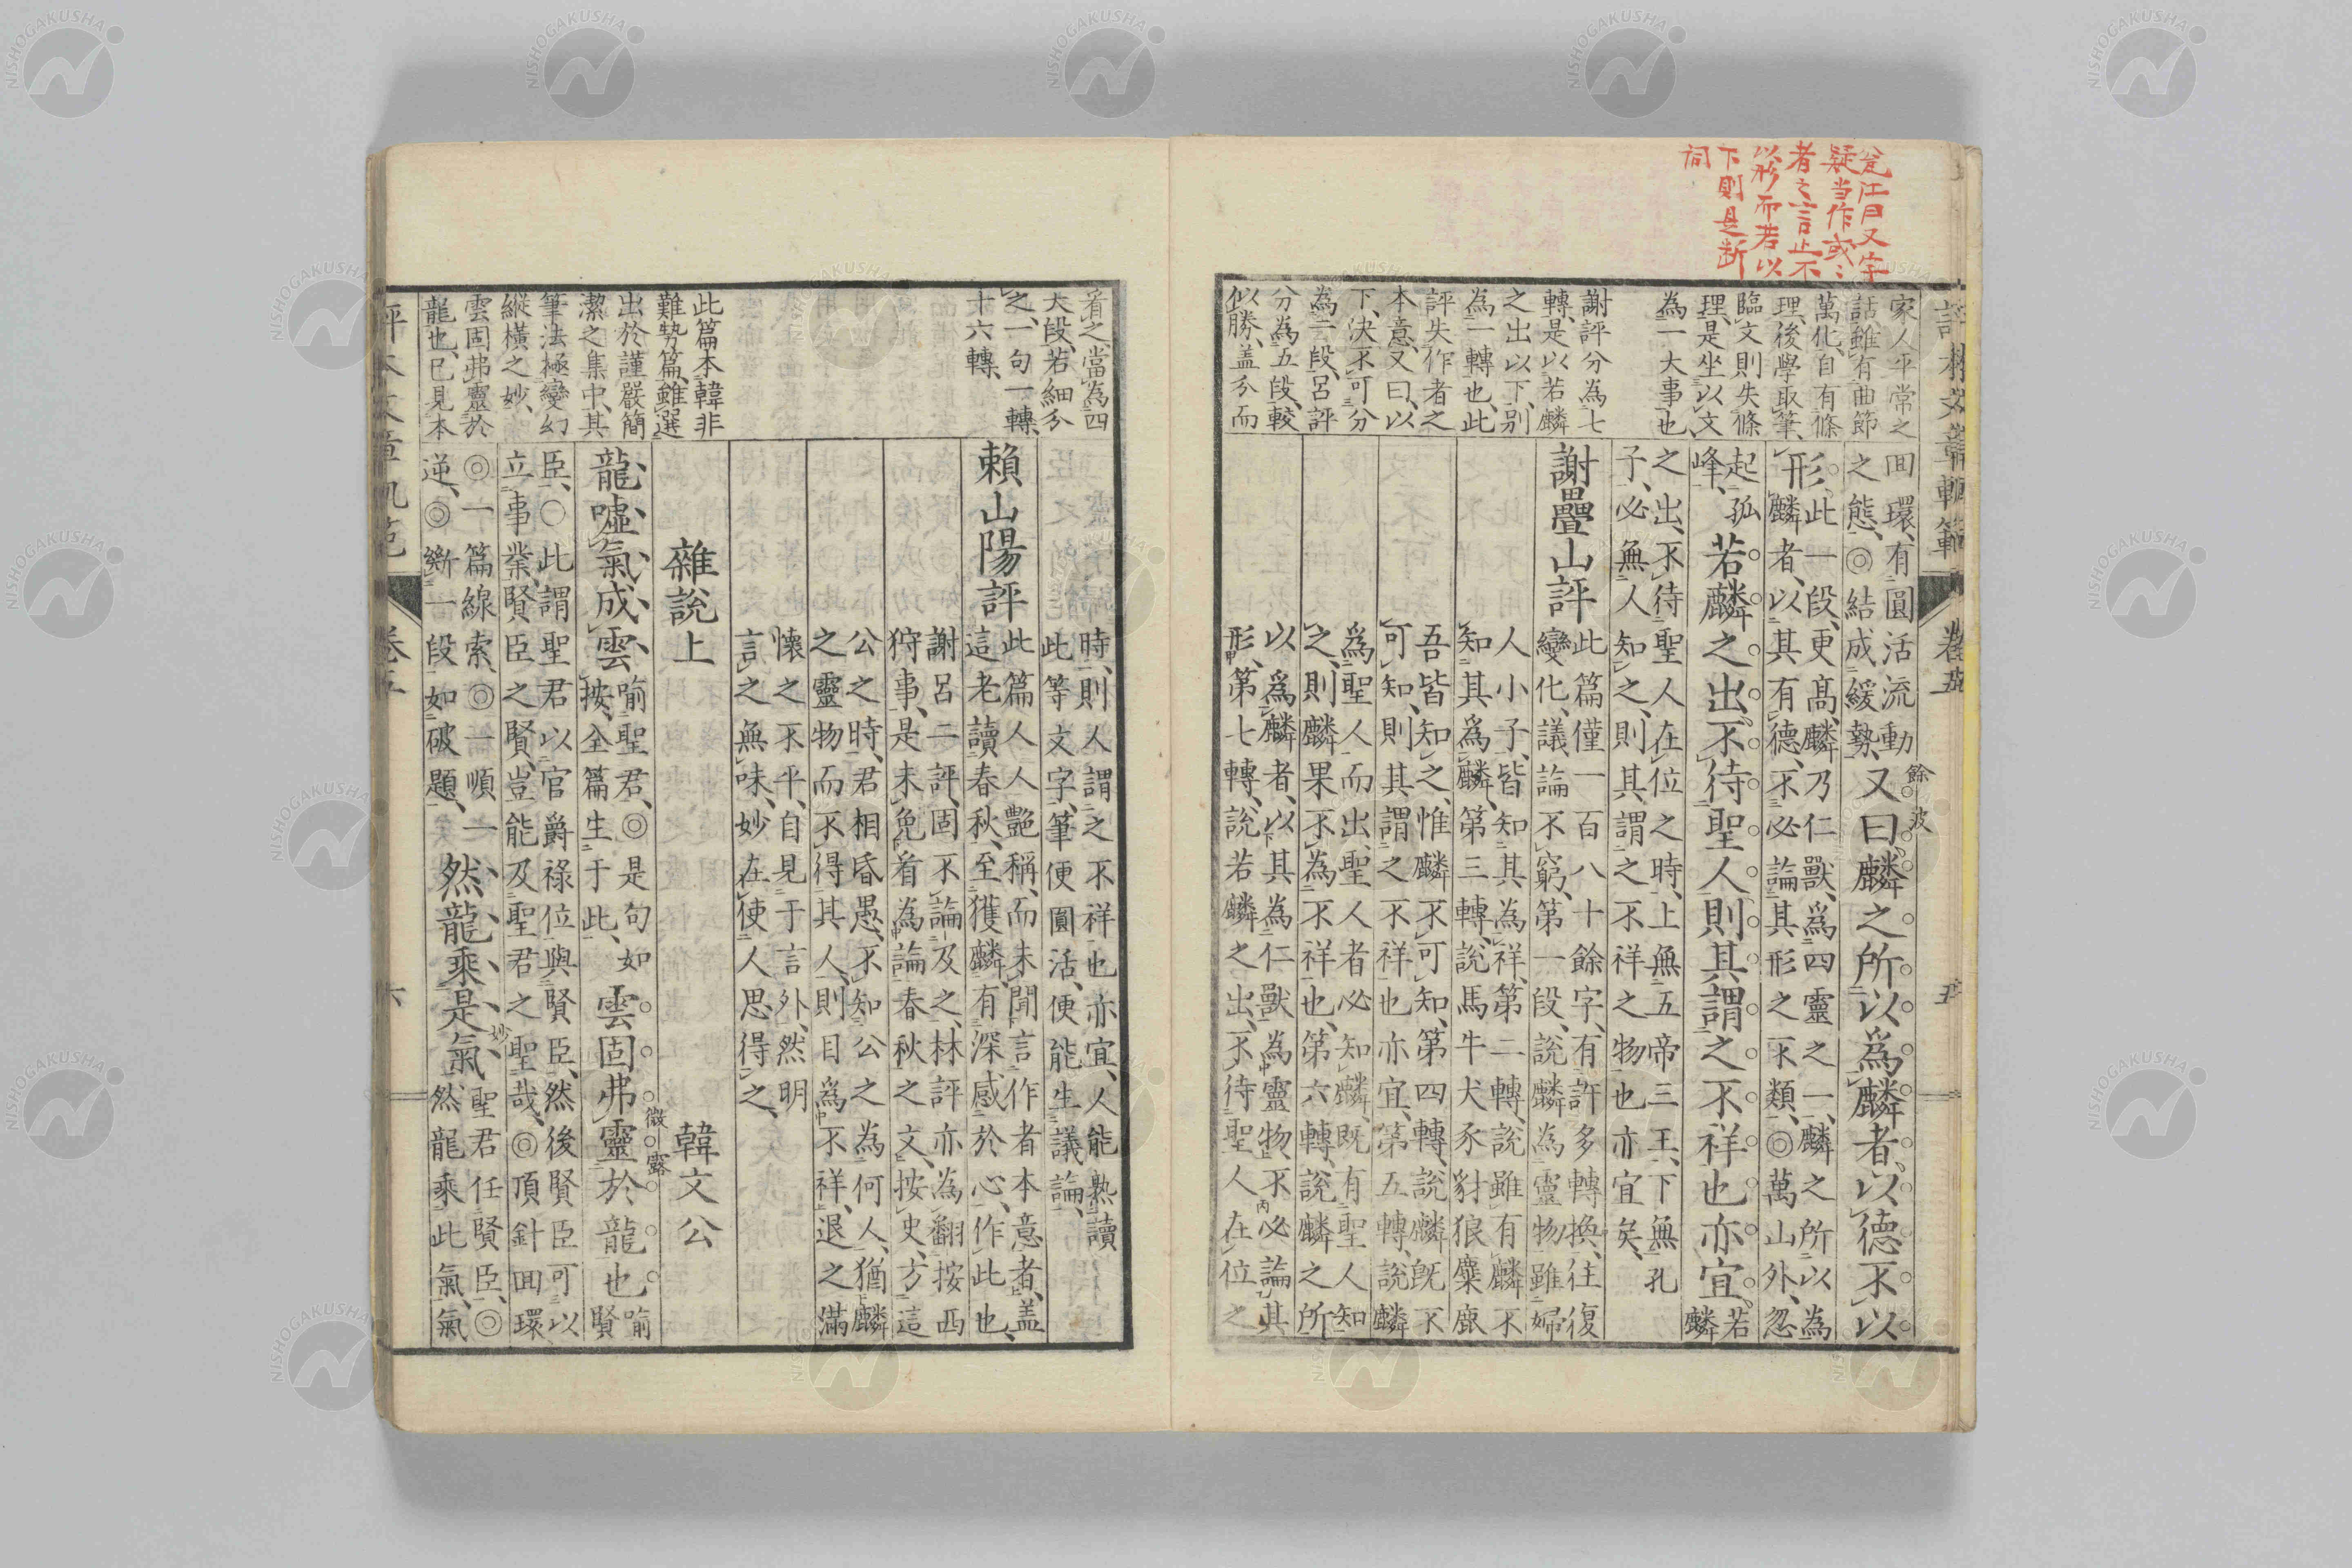 瓮江曰又字
疑当作或〻
者之言止不
以形而若以
下則是断
詞
家人平常之
話雖有曲節
萬化自有條
理後學取筆
臨文則失條
理是坐以文
為一大事也
謝評分為七
轉是以若麟
之出以下別
為一轉也此
評失作者之
本意又曰以
下決不可分
為二段呂評
分為五段較
似勝盖分而
回環有圓活流動
之態◎結成緩勢
又曰麟之所以爲麟者以德不以
餘波
形
此一段更高麟乃仁獸爲四靈之一麟之所以為
麟者以其有德不必論其形之不類◎萬山外忽
起孤
峰
若麟之出不待聖人則其謂之不祥也亦宜
若
麟
之出不待聖人在位之時上無五帝三王下無孔
子必無人知之則其謂之不祥之物也亦宜矣
謝疊山評
此篇僅一百八十餘字有許多轉換往復
變化議論不窮第一段說麟為靈物雖婦
人小子皆知其為祥第二轉說雖有麟不
知其爲麟第三轉說馬牛犬豕豺狼麋鹿
吾皆知之惟麟不可知第四轉說麟既不
可知則其謂之不祥也亦宜第五轉說麟
爲聖人而出聖人者必知麟既有聖人知
之則麟果不為不祥也第六轉說麟之所
以爲麟者以其為仁獸為靈物不必論其
形第七轉說若麟之出不待聖人在位之
評林文章軌範
卷五
五
看之當為四
大段若細分
之一句一轉
十六轉
此篇本韓非
難勢篇雖選
出於謹嚴簡
潔之集中其
筆法極變幻
縱橫之妙
雲固弗靈於
龍也已見本
時則人謂之不祥也亦宜人能熟讀
此等文字筆便圓活便能生議論
賴山陽評
此篇人人艷稱而未聞言作者本意者盖
這老讀春秋至獲麟有深感於心作此也
謝呂二評固不論及之林評亦為翻按西
狩事是未免看為論春秋之文按史方這
公之時君相昏愚不知公之為何人猶麟
之靈物而不得其人則目爲不祥退之滿
懐之不平自見于言外然明
言之無味妙在使人思得之
雜說上
韓文公
龍噓氣成雲
喻聖君◎是句如
按全篇生于此
雲固弗靈於龍也
微露
喻
賢
臣○此謂聖君以官爵祿位與賢臣然後賢臣可以
立事業賢臣之賢豈能及聖君之聖哉◎頂針回環
◎一篇線索◎一順一
逆◎斷一段如破題
然龍乘是氣
妙
聖君任賢臣◎
然龍乘此氣氣
卷五
六